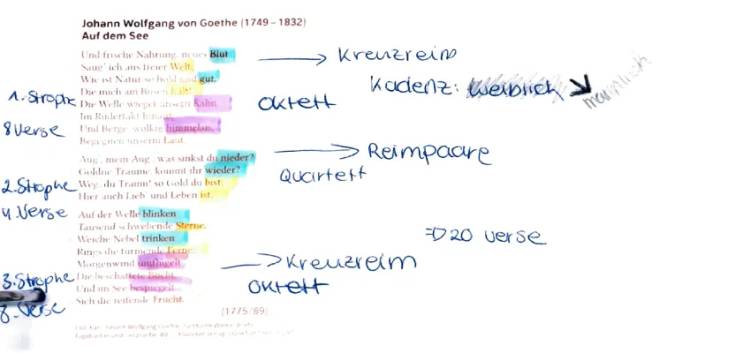 Johann Wolfgang von Goethe (1749 – 1832)
Auf dem See
Und frische Nahrung, neues Blut
Saug' ich aus freier Welt;
Wie ist Natur so hold und gut,
Die mich am Busen hält!
Die Welle wieget unsern Kahn
Im Rudertakt hinauf,
Und Berge, wolkig himmelan,
Begegnen unserm Lauf.
Aug', mein Aug', was sinkst du nieder?
Goldne Träume, kommt ihr wieder?
Weg, du Traum! so Gold du bist;
Hier auch Lieb' und Leben ist.
Auf der Welle blinken
Tausend schwebende Sterne,
Weiche Nebel trinken
Rings die türmende Ferne;
Morgenwind umflügelt
Die beschattete Bucht,
Und im See bespiegelt
Sich die reifende Frucht.
(1775/89)
1. Strophe
8 Verse
2. Strophe
4. Verse
3. Strophe
8. Verse
Kreuzreim
Kadenz: weiblich
männlich
Oktett
Reimpaare
Quartett
20 Verse
Kreuzreim
Oktett